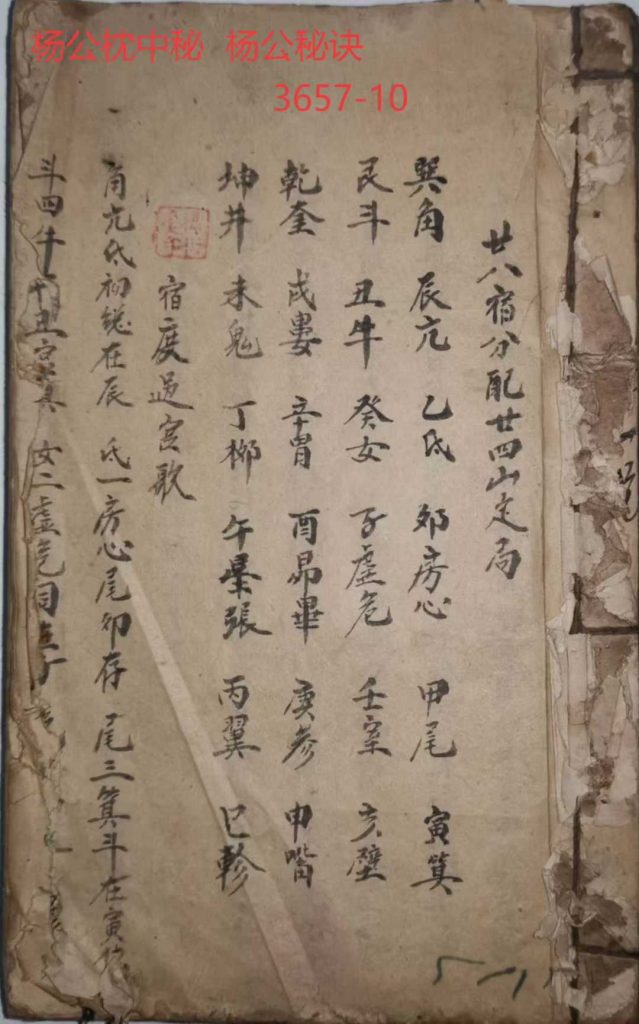 杨公枕中秘 杨公秘诀
3657-10
廿八宿分配廿四山定局
巽角 辰亢 乙氐 卯房心 甲尾 寅箕
艮斗 丑牛 癸女 子虚危 壬室 亥壁
乾奎 戌婁 辛胃 酉昴畢 庚参 申嘴
坤井 未鬼 丁柳 午星張 丙翼 巳軫
宿度过宮歌
角亢氐初総在辰 氐一房心尾卯存 尾三箕斗在寅
斗四牛 丑宮 女二虚危同